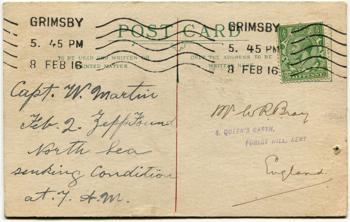 GRIMSBY
5. 45 PM
8 FEB 16
GRIMSBY
5. 45 PM
8 FEB 16
POST CARD
TO BE USED AND WRITTEN ON
PRINTED MATTER
THE ADDRESS TO BE
Capt. W. Martin
Feb 2. Zepp Found
North Sea
sinking Condition
at 7 A.M.
Mr W R Bray
QUEEN'S GARTH,
FOREST HILL, KENT
England